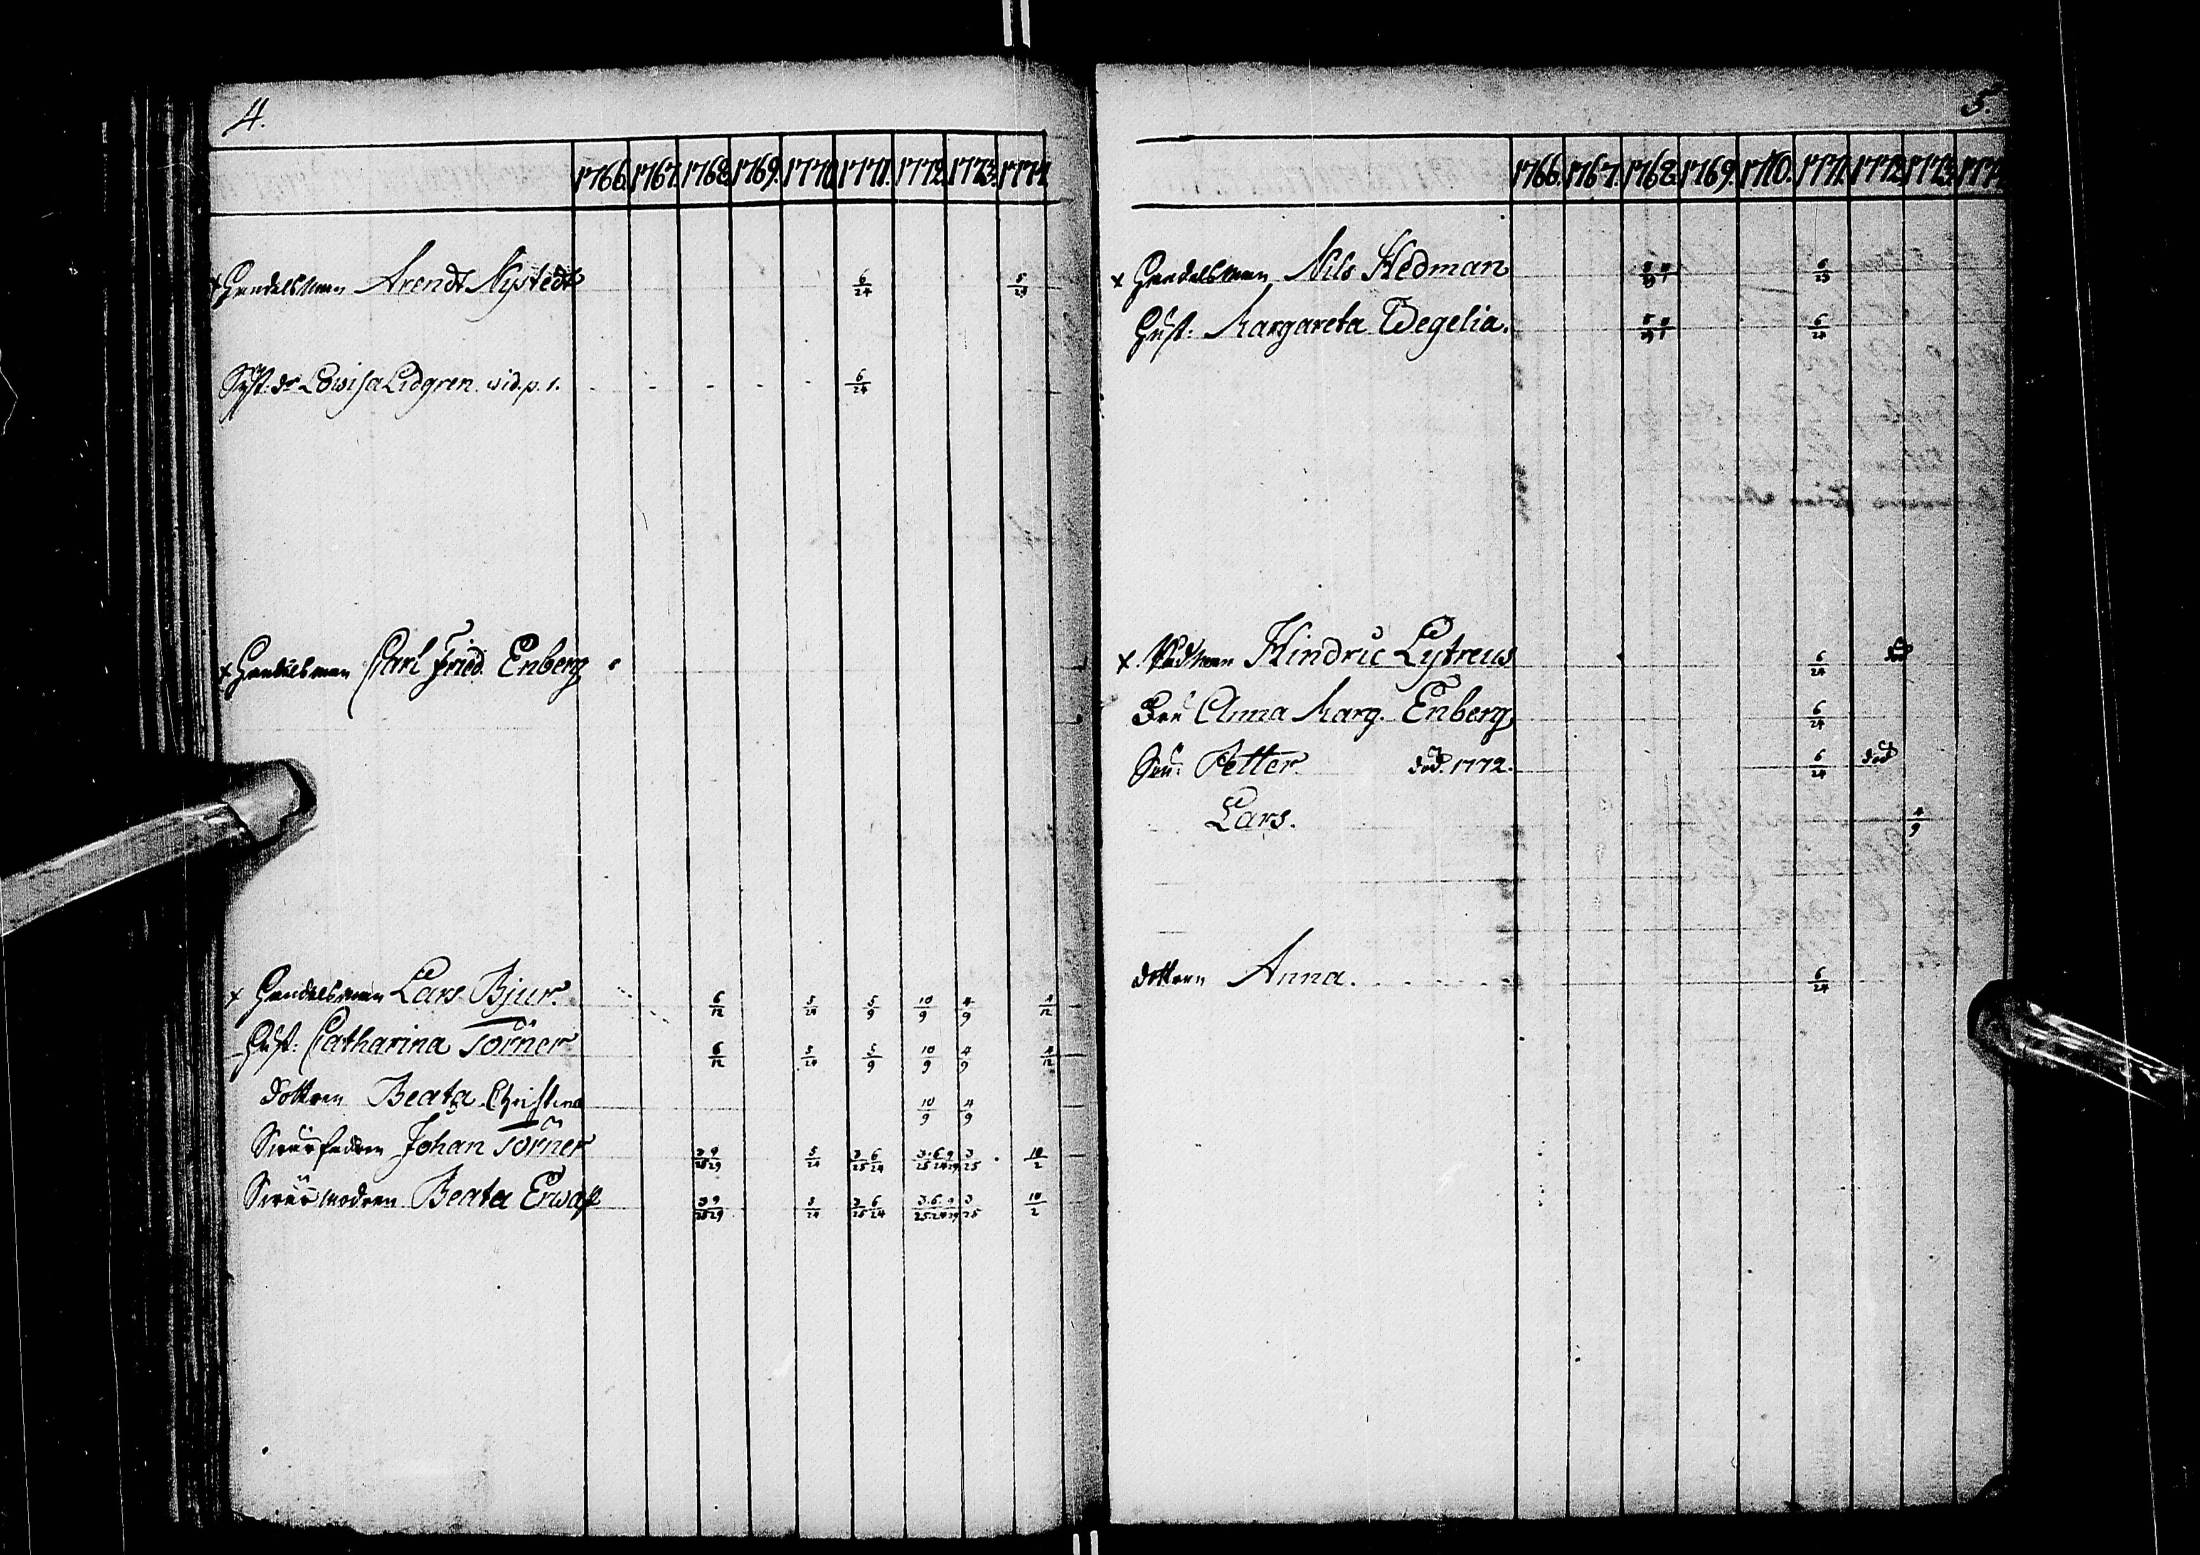 4.
1766. 1767. 1768. 1769. 1770. 1771. 1772. 1773. 1774
+ Handelsman Arendt Nystedt 6/24 5/24
Syst: dr Lowisa Lidgren vid. p. 1. 6/24
+ Handelsman Carl Fried. Enberg
+ Handelsman Lars Bjur. 6/12 5/24 5/9 10/9 4/9 4/12
Hust: Catharina Törner 6/12 5/24 5/9 10/9 4/9 4/12
dottren Beata Christina 10/9 4/9
Swärfadren Johan Törner 3/25 9/29 5/24 3/25 6/24 3/25 6/24 9/29 3/25 10/2
Swärmodren Beata Erwast 3/25 9/29 5/24 3/25 6/24 3/25 6/24 9/29 3/25 10/2
5.
1766. 1767. 1768. 1769. 1770. 1771. 1772. 1773. 1774
+ Handelsman Nils Hedman 6/23
Hust: Margareta Wegelia. 6/24
+ Rådman Hindric Lytreus 6/24 död
Anna Marg. Enberg 6/24
Son: Petter död. 1772. 6/24 död
Lars. 4/9
dottren Anna. 6/24